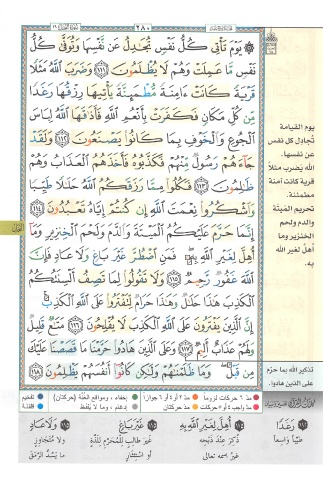 ٢٨٠
۞ يَوْمَ تَأْتِى كُلُّ نَفْسٍ تُجَٰدِلُ عَن نَّفْسِهَا وَتُوَفَّىٰ كُلُّ
نَفْسٍ مَّا عَمِلَتْ وَهُمْ لَا يُظْلَمُونَ ١١١ وَضَرَبَ ٱللَّهُ مَثَلًا
قَرْيَةً كَانَتْ ءَامِنَةً مُّطْمَئِنَّةً يَأْتِيهَا رِزْقُهَا رَغَدًا
مِّن كُلِّ مَكَانٍ فَكَفَرَتْ بِأَنْعُمِ ٱللَّهِ فَأَذَٰقَهَا ٱللَّهُ لِبَاسَ
ٱلْجُوعِ وَٱلْخَوْفِ بِمَا كَانُوا۟ يَصْنَعُونَ ١١٢ وَلَقَدْ
جَآءَهُمْ رَسُولٌ مِّنْهُمْ فَكَذَّبُوهُ فَأَخَذَهُمُ ٱلْعَذَابُ وَهُمْ
ظَٰلِمُونَ ١١٣ فَكُلُوا۟ مِمَّا رَزَقَكُمُ ٱللَّهُ حَلَٰلًا طَيِّبًا
وَٱشْكُرُوا۟ نِعْمَتَ ٱللَّهِ إِن كُنتُمْ إِيَّاهُ تَعْبُدُونَ ١١٤
إِنَّمَا حَرَّمَ عَلَيْكُمُ ٱلْمَيْتَةَ وَٱلدَّمَ وَلَحْمَ ٱلْخِنزِيرِ وَمَآ
أُهِلَّ لِغَيْرِ ٱللَّهِ بِهِۦ فَمَنِ ٱضْطُرَّ غَيْرَ بَاغٍ وَلَا عَادٍ فَإِنَّ
ٱللَّهَ غَفُورٌ رَّحِيمٌ ١١٥ وَلَا تَقُولُوا۟ لِمَا تَصِفُ أَلْسِنَتُكُمُ
ٱلْكَذِبَ هَٰذَا حَلَٰلٌ وَهَٰذَا حَرَامٌ لِّتَفْتَرُوا۟ عَلَى ٱللَّهِ ٱلْكَذِبَ
إِنَّ ٱلَّذِينَ يَفْتَرُونَ عَلَى ٱللَّهِ ٱلْكَذِبَ لَا يُفْلِحُونَ ١١٦ مَتَٰعٌ قَلِيلٌ
وَلَهُمْ عَذَابٌ أَلِيمٌ ١١٧ وَعَلَى ٱلَّذِينَ هَادُوا۟ حَرَّمْنَا مَا قَصَصْنَا عَلَيْكَ
مِن قَبْلُ وَمَا ظَلَمْنَٰهُمْ وَلَٰكِن كَانُوٓا۟ أَنفُسَهُمْ يَظْلِمُونَ ١١٨
يوم القيامة
تُجادل كل نفس
عن نفسها.
الله يضرب مثلاً
قرية كانت آمنة
مطمئنة.
تحريم الميتة
والدم ولحم
الخنزير وما
أُهل لغير الله
به.
تذكير الله بما حرّم
على الذين هادوا.
رَغَدًا
طيّباً واسعاً
أُهِلَّ لِغَيْرِ ٱللَّهِ بِهِ
ذُكِرَ عند ذبحه
غير اسمه تعالى
غَيْرَ بَاغٍ
غير طالبٍ للمُحرّم للذّة
أو استئثار
وَلَا عَادٍ
ولا متجاوز
ما يسدّ الرّمق